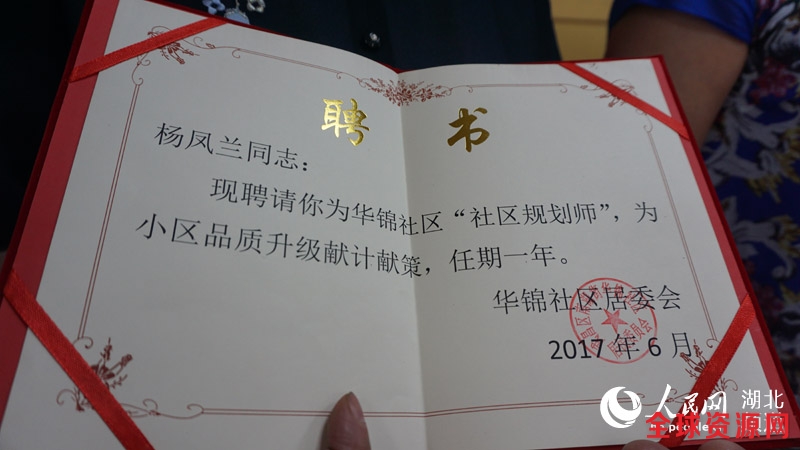 聘书
杨凤兰同志：
现聘请你为华锦社区“社区规划师”，为
小区品质升级献计献策，任期一年。
华锦社区居委会
2017年6月
人民网 湖北
全球资源网